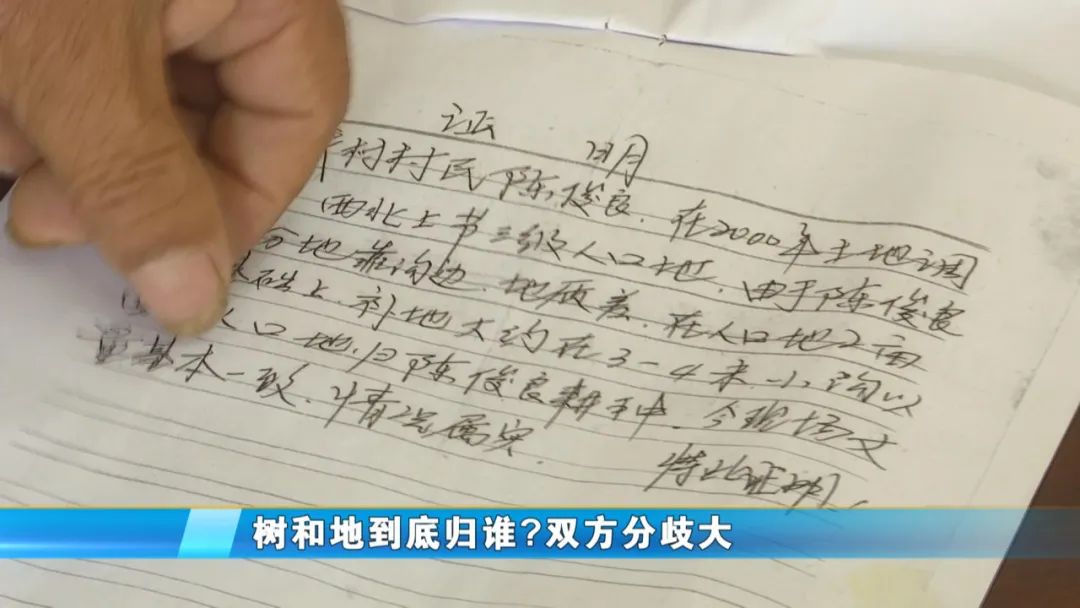 证 明
村村民陈俊良.在2000年土地调
西北上节三级人口地.由于陈俊良
地靠沟边.地质差.在人口地2亩
基础上.补地大约在3-4米.小沟以
人口地.归陈俊良耕种.今现场丈
量基本一致.情况属实.
特此证明.
树和地到底归谁?双方分歧大